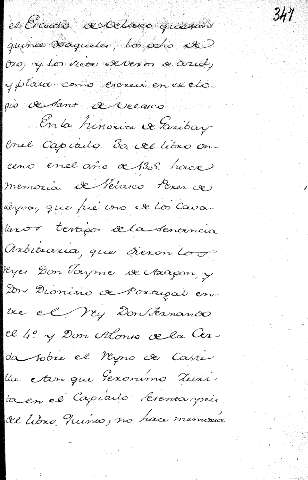 347
el Escudo de Velasco que son
quince Jaqueles, los ocho de
oro, y los siete de veros de azul,
y plata como escrivi en su elo-
gio de Velasco.
En la historia de Garibay
en el Capitulo 30 del libro on-
ceno en el año de hace
memoria de Velasco Perez de
Leyva, que fué uno de los Cava-
lleros testigos de la Sentencia
Arbitraria, que dieron los
reyes Don Jayme de Aragon, y
Don Dionisio de Portugal en-
tre el Rey Don Fernando
el 4º y Don Alonso de la Cer-
da sobre el Reyno de Casti-
lla aunque Geronimo Zuri-
ta en el Capitulo sesenta y seis
del libro Quinto, no hace memoria